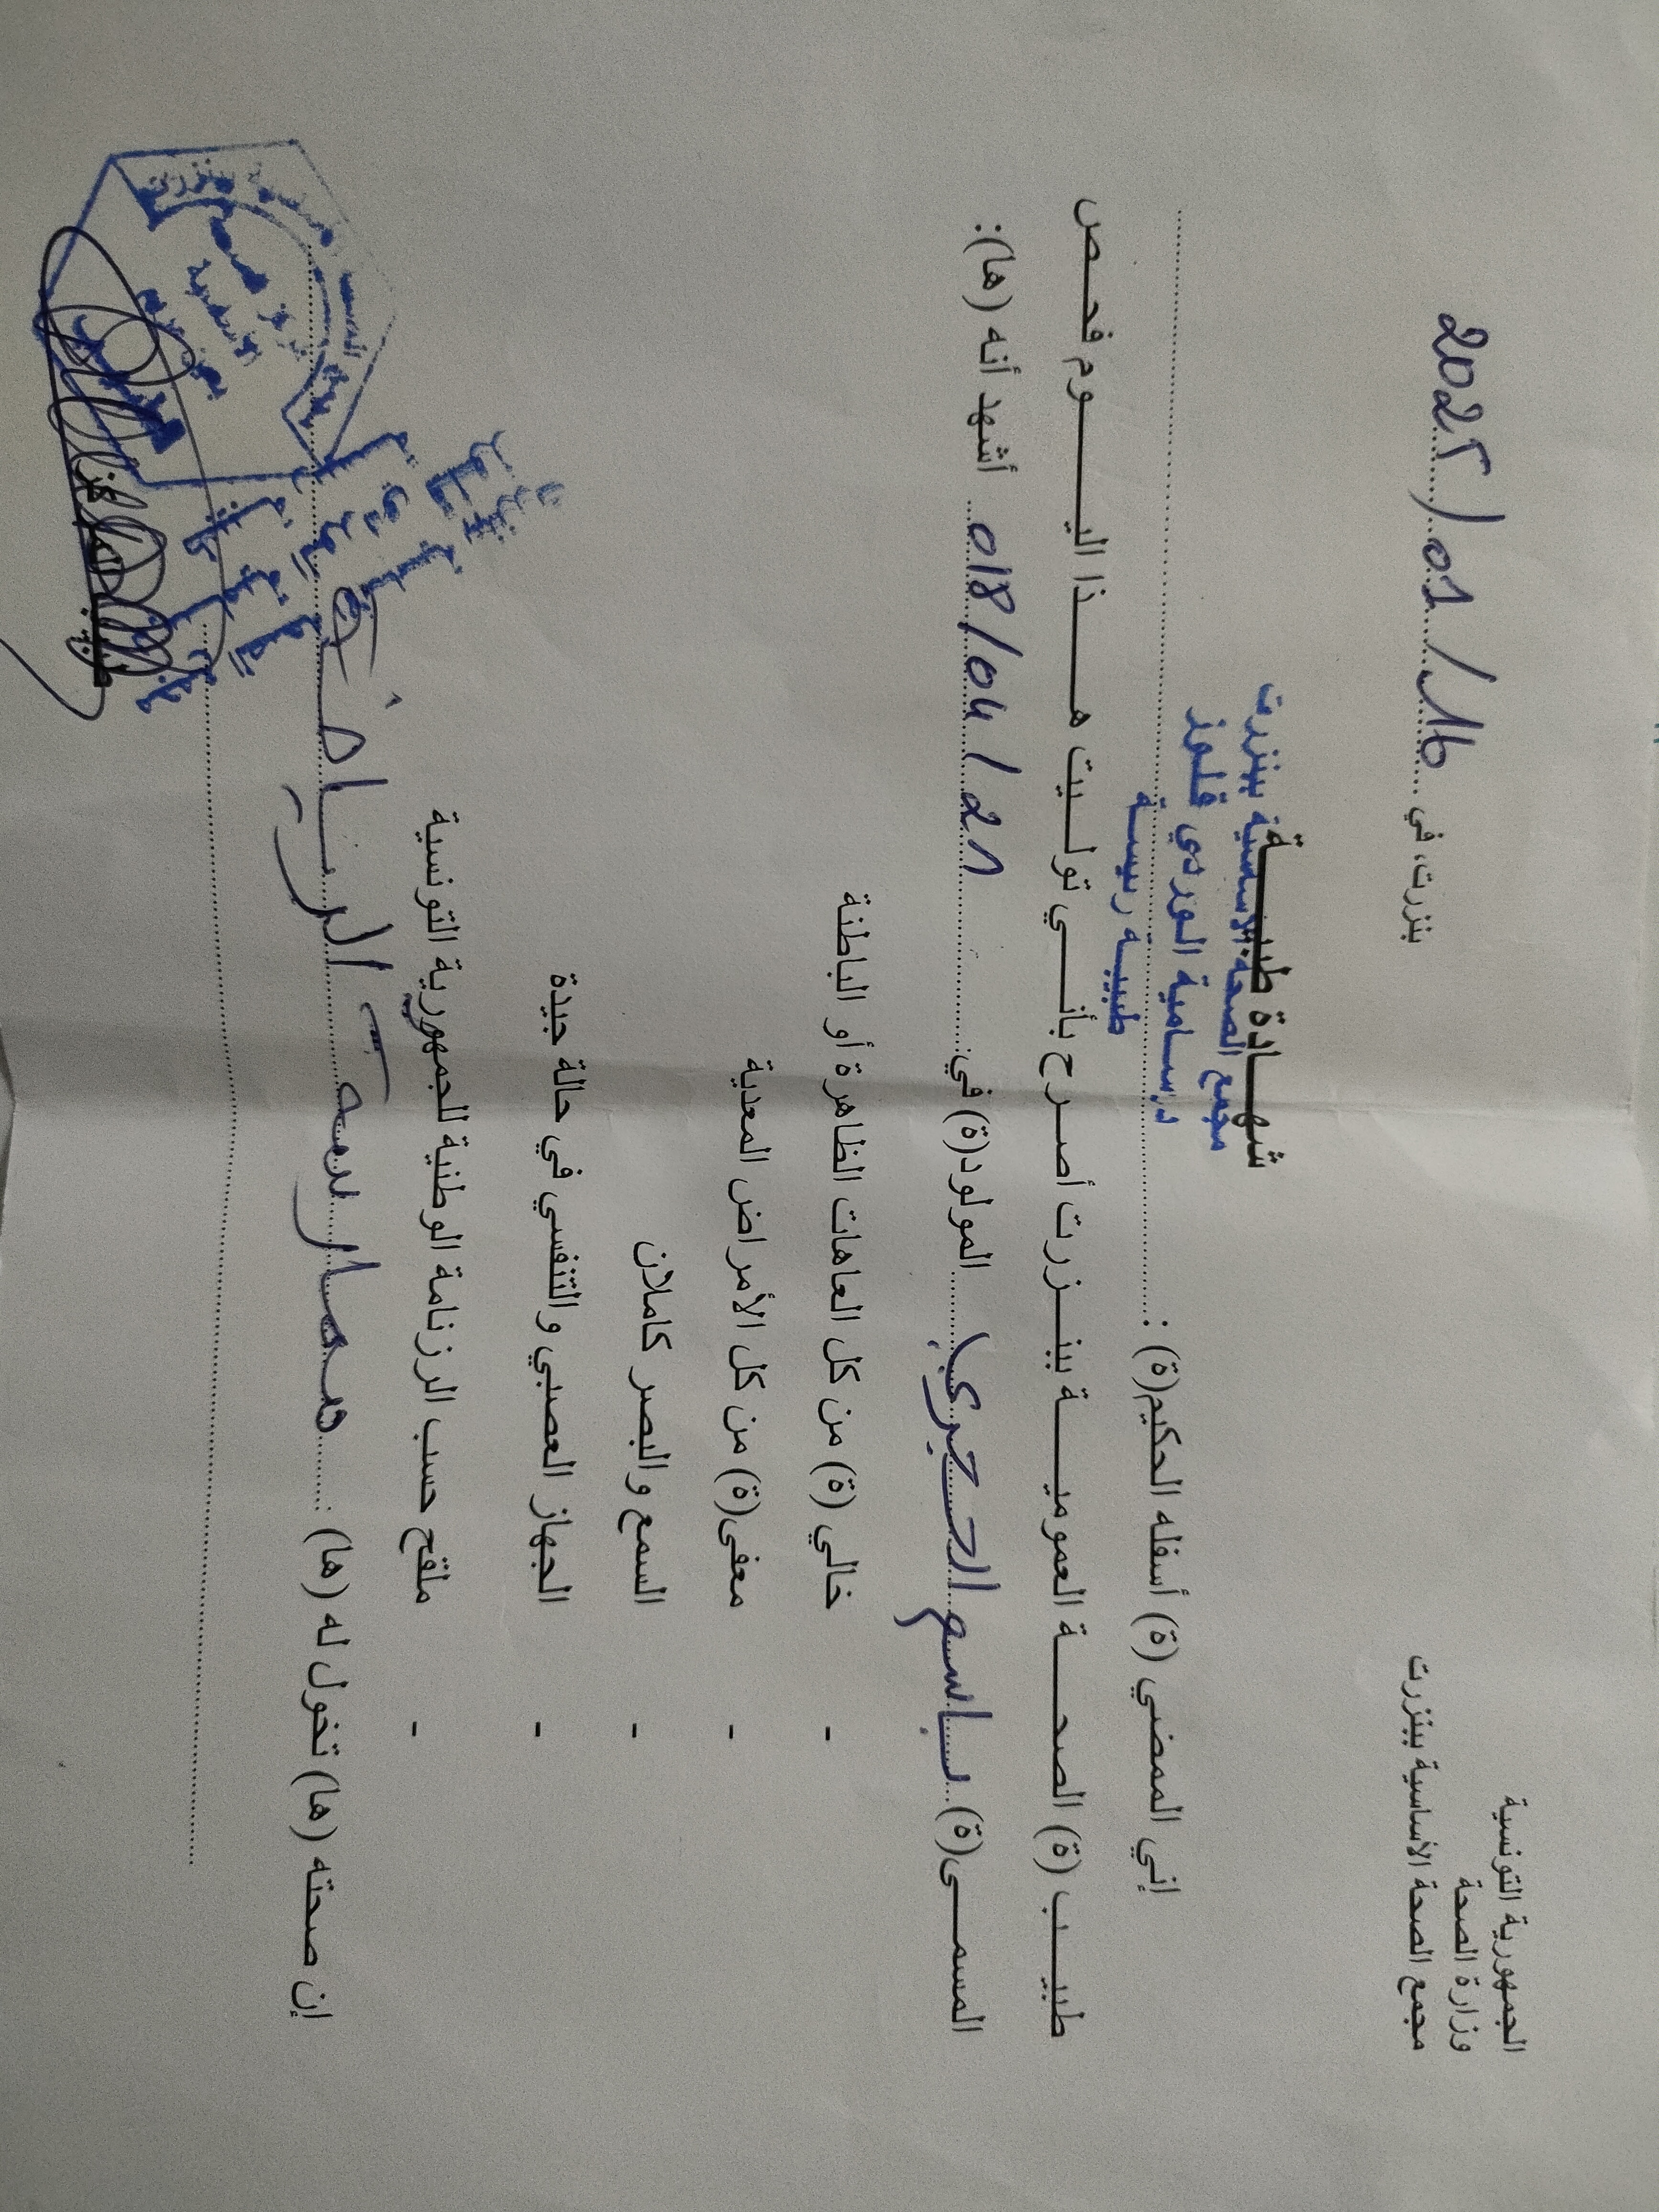 الجمهورية التونسية
وزارة الصحة
مجمع الصحة الأساسية ببنزرت
بنزرت، في 2025/01/16
شهـــادة طبيـــة
مجمع الصحة الأساسية ببنزرت
د. سامية الوردي قلوز
طبيبة رئيسة
إني الممضي (ة) أسفله الحكيم(ة) :
طبيـــب (ة) الصحـــة العموميـــة ببنـــزرت أصـــرح بأنـــي توليـــت هـــذا اليـــوم فحـــص
المسمـــى(ة) باسم الجبري المولود(ة) في: 018/04/21 أشهد أنه (ها):
- خالي (ة) من كل العاهات الظاهرة أو الباطنة
- معفى(ة) من كل الأمراض المعدية
- السمع والبصر كاملان
- الجهاز العصبي والتنفسي في حالة جيدة
- ملقح حسب الرزنامة الوطنية للجمهورية التونسية
إن صحته (ها) تخول له (ها): ممارسة الرياضة
ببنزرت
قلوز
الوردي